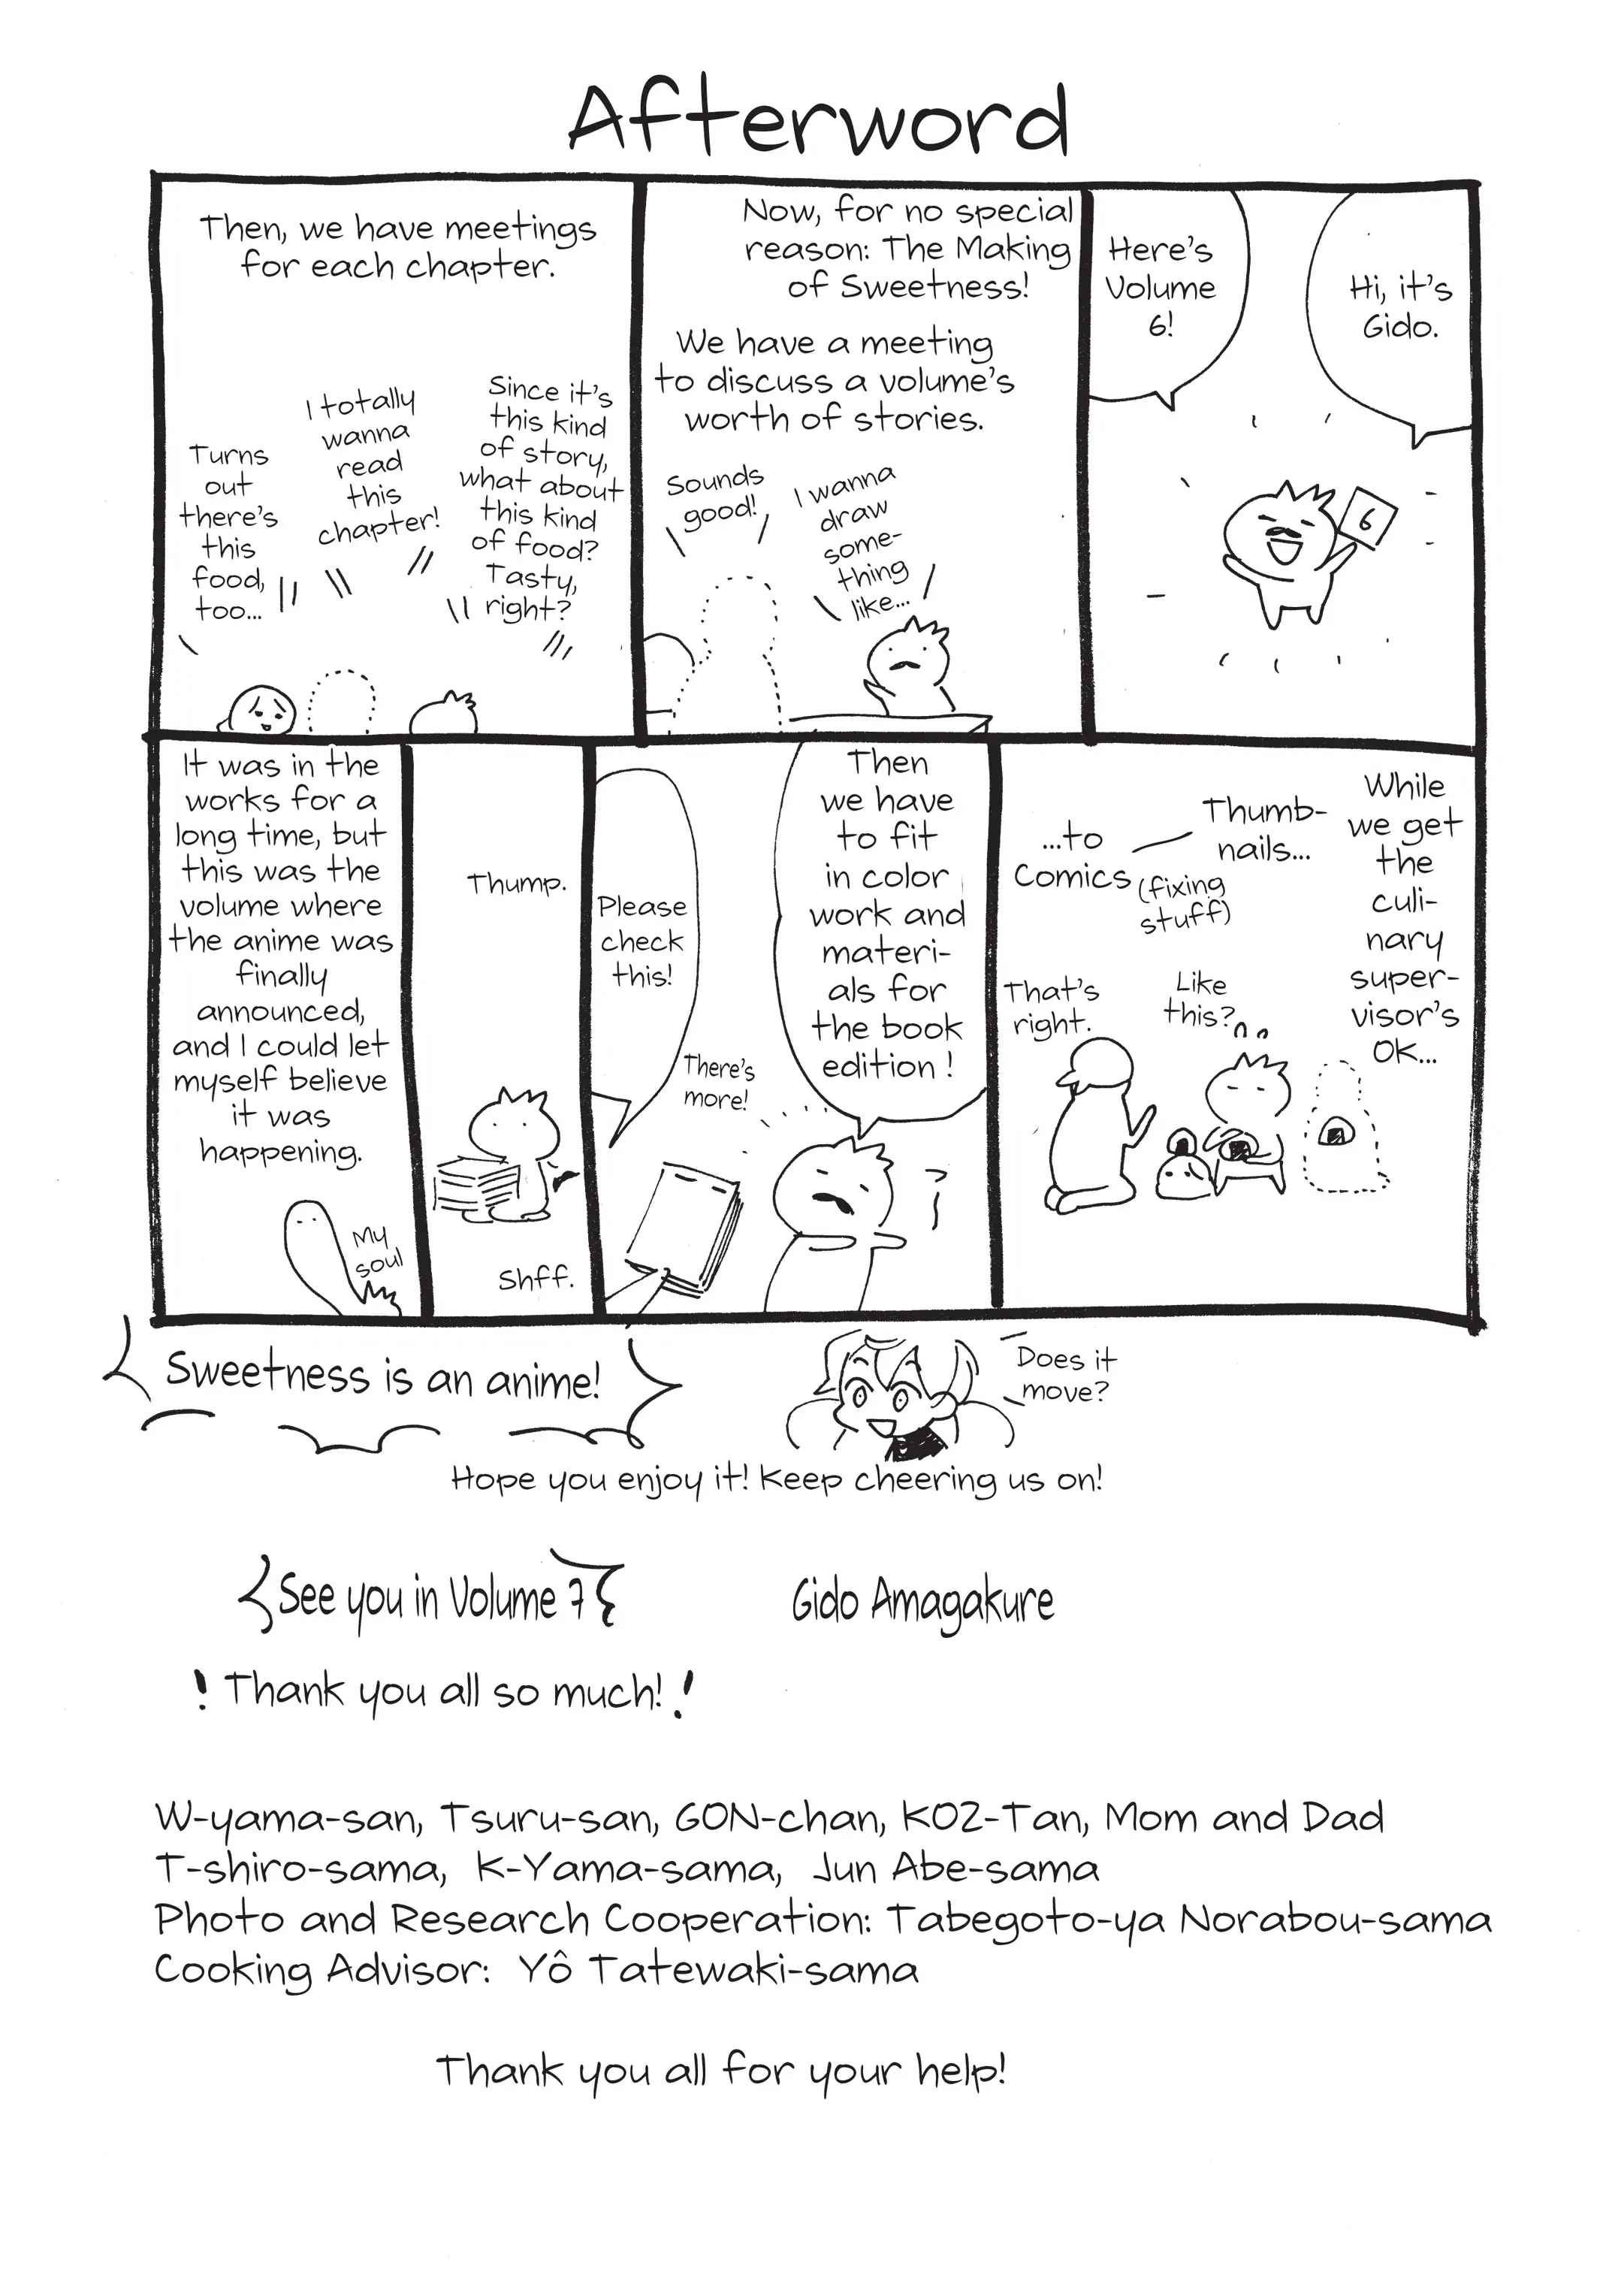 Afterword
Hi, it's
Gido.
Here's
Volume
6!
Now, for no special
reason: The Making
of Sweetness!
We have a meeting
to discuss a volume's
worth of stories.
I wanna
draw
some-
thing
like...
Sounds
good!
Then, we have meetings
for each chapter.
Since it's
this kind
of story,
what about
this kind
of food?
Tasty,
right?
I totally
wanna
read
this
chapter!
Turns
out
there's
this
food,
too...
While
we get
the
culi-
nary
super-
visor's
OK...
Thumb-
nails...
...to
Comics
(fixing
stuff)
Like
this?
That's
right.
Then
we have
to fit
in color
work and
materi-
als for
the book
edition!
There's
more!
Please
check
this!
Thump.
Shff.
It was in the
works for a
long time, but
this was the
volume where
the anime was
finally
announced,
and I could let
myself believe
it was
happening.
My
soul
6
Sweetness is an anime!
Does it
move?
Hope you enjoy it! Keep cheering us on!
See you in Volume 7
Gido Amagakure
! Thank you all so much! !
W-yama-san, Tsuru-san, GON-chan, KOZ-Tan, Mom and Dad
T-shiro-sama, K-Yama-sama, Jun Abe-sama
Photo and Research Cooperation: Tabegoto-ya Norabou-sama
Cooking Advisor: Yô Tatewaki-sama
Thank you all for your help!